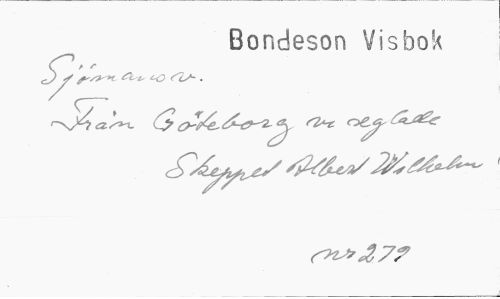 Bondeson Visbok
Sjömansv.
Från Göteborg vi seglade
Skeppet Albert Wilhelm
nr 279